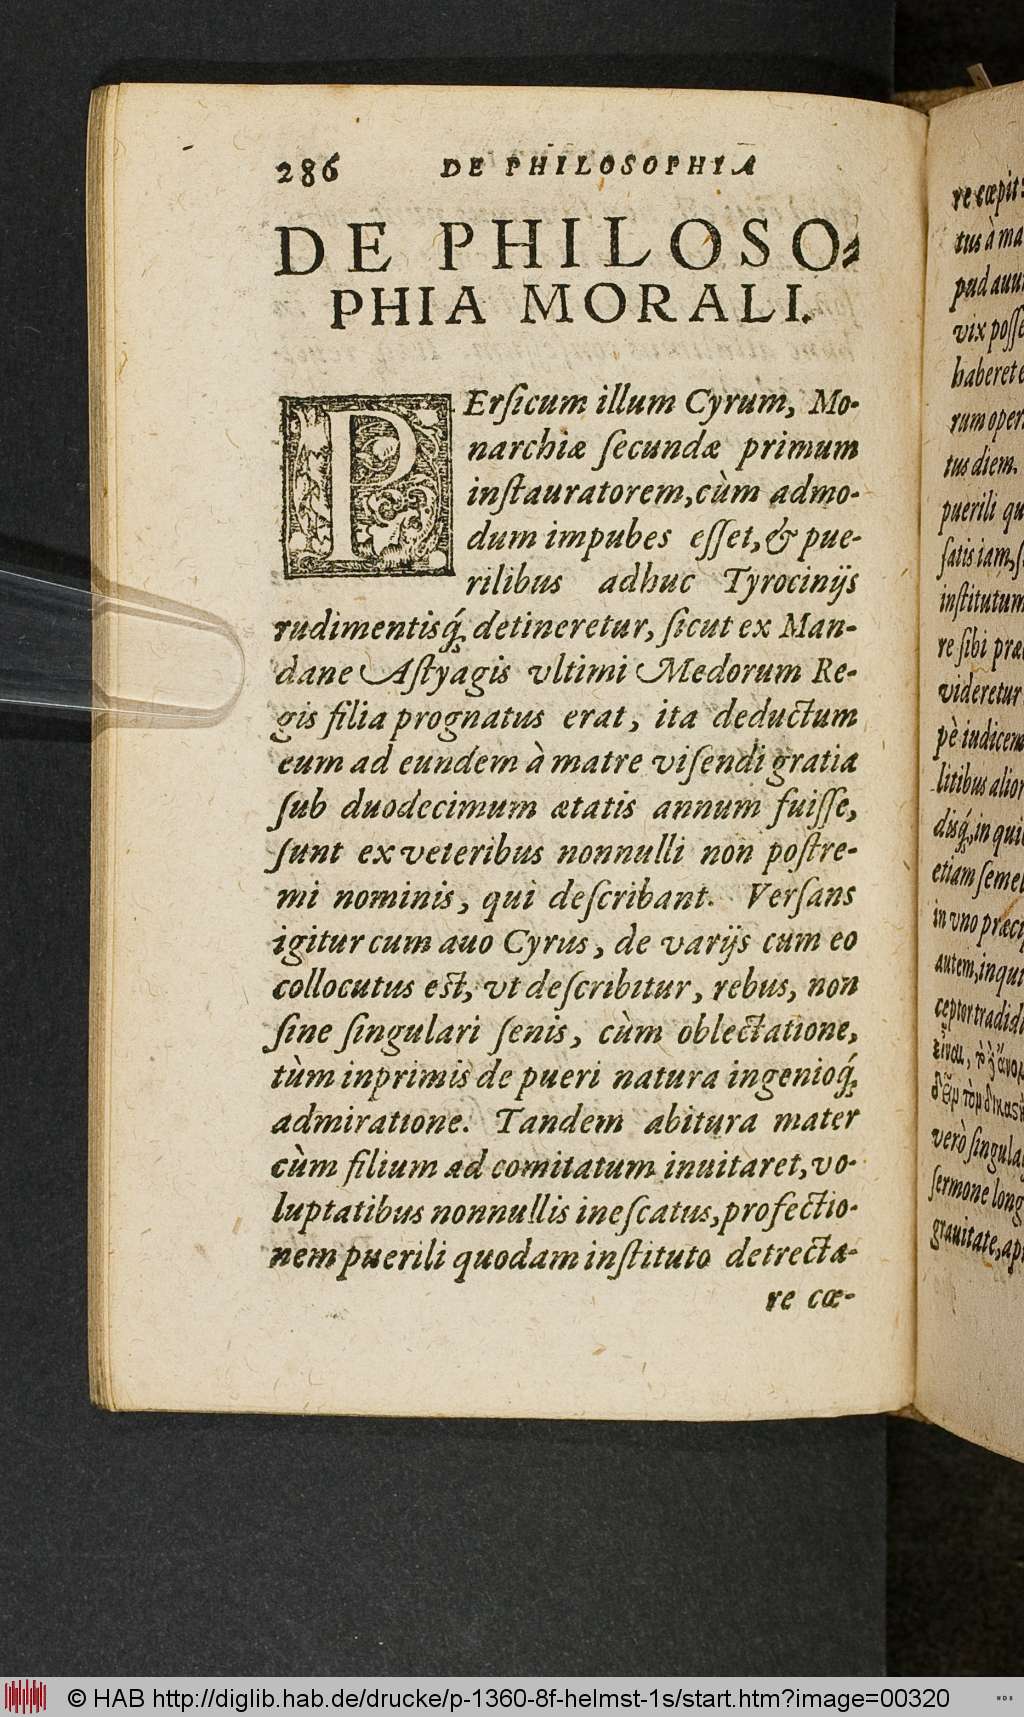 286 DE PHILOSOPHIA
DE PHILOSO-
PHIA MORALI.
PErſicum illum Cyrum, Mo-
narchiæ ſecundæ primum
inſtauratorem, cùm admo-
dum impubes eſſet, & pue-
rilibus adhuc Tyrocinijs
rudimentisq́; detineretur, ſicut ex Man-
dane Aſtyagis vltimi Medorum Re-
gis filia prognatus erat, ita deductum
eum ad eundem à matre viſendi gratia
ſub duodecimum ætatis annum fuiſſe,
ſunt ex veteribus nonnulli non poſtre-
mi nominis, qui deſcribant. Verſans
igitur cum auo Cyrus, de varijs cum eo
collocutus eſt, vt deſcribitur, rebus, non
ſine ſingulari ſenis, cùm oblectatione,
tùm inprimis de pueri natura ingenioq́;
admiratione. Tandem abitura mater
cùm filium ad comitatum inuitaret, vo-
luptatibus nonnullis ineſcatus, profectio-
nem puerili quodam inſtituto detrecta-
re cœ-
re cœpit:
tus à ma
pud auu
vix poſſe
haberet
rum oper
tus diem.
puerili qu
ſatis iam, ſ
inſtitutum
re ſibi præ
videretur
pè iudicem
litibus alior
disq́;, in qui
etiam ſemel
in vno præci
autem, inqui
ceptor tradidi
verò ſingula
ſermone long
grauitate, ap
© HAB http://diglib.hab.de/drucke/p-1360-8f-helmst-1s/start.htm?image=00320